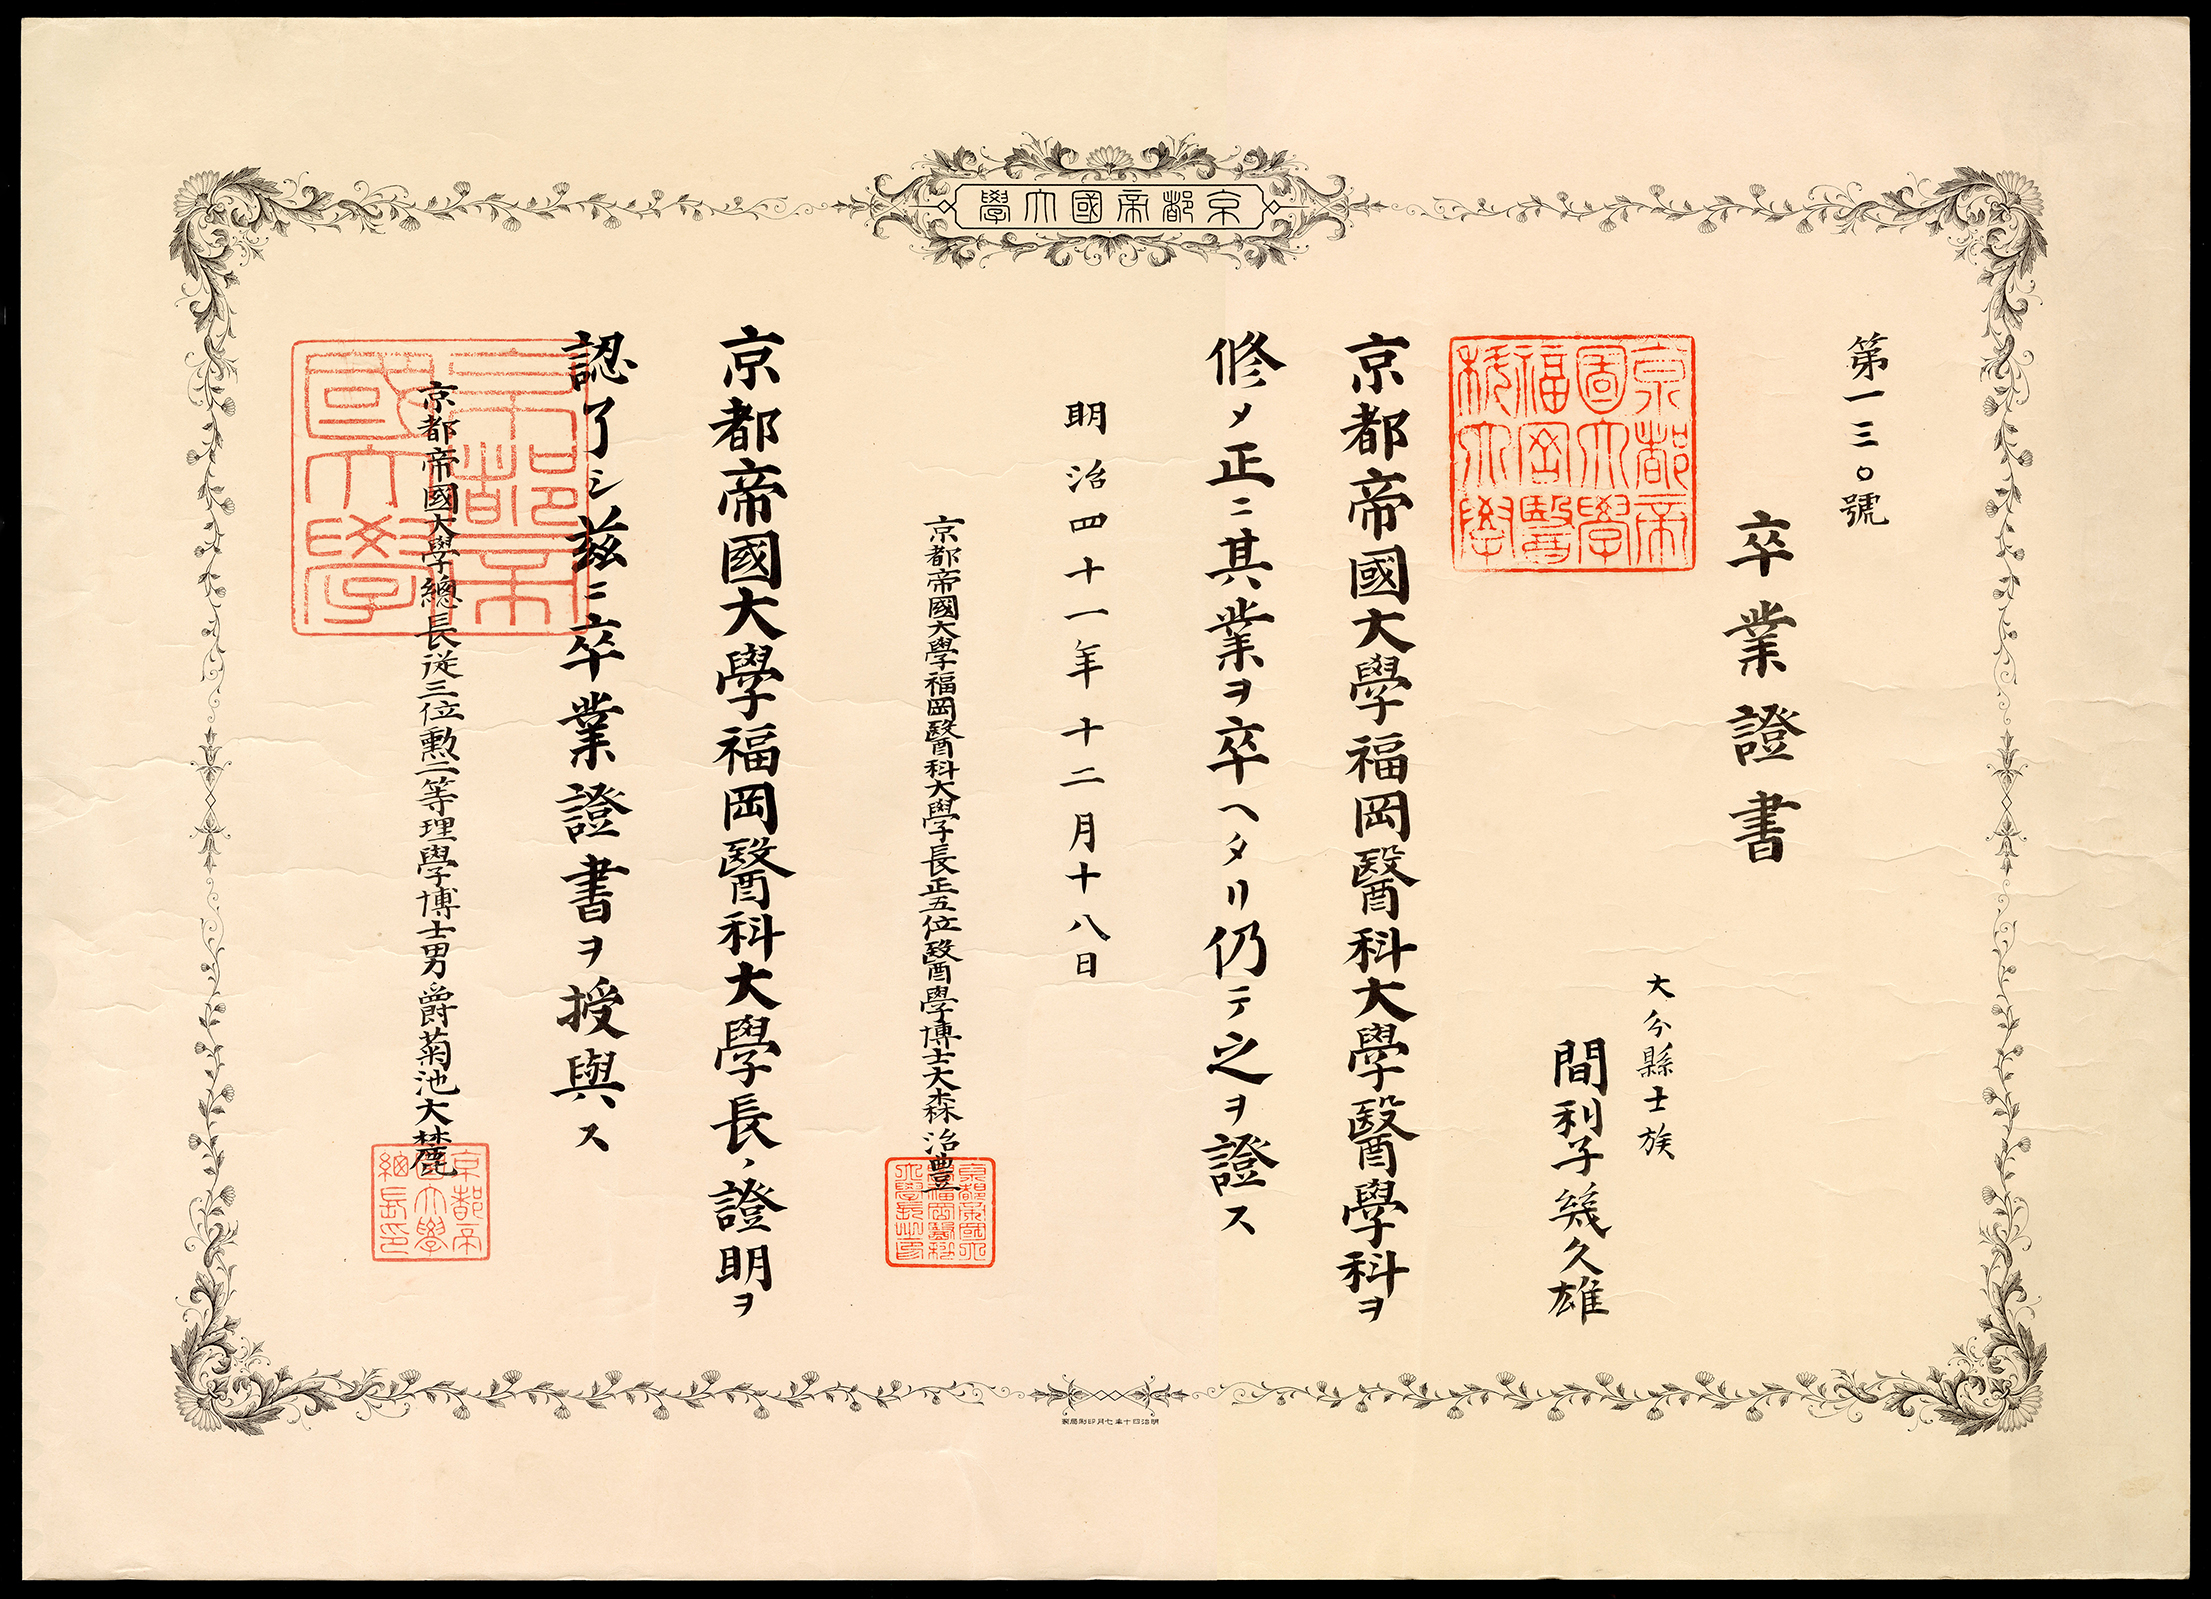 京都帝國大學
第一三〇號
卒業證書
京都帝國大學福岡醫科大學
大分縣士族
間利子幾久雄
京都帝國大學福岡醫科大學醫學科ヲ
修メ正ニ其業ヲ卒ヘタリ仍テ之ヲ證ス
明治四十一年十二月十八日
京都帝國大學福岡醫科大學長正五位醫學博士大森治豊
京都帝國大學福岡醫科大學長ノ證明ヲ
認了シ茲ニ卒業證書ヲ授與ス
京都帝國大學總長従三位勲二等理學博士男爵菊池大麓
京都帝國大學
京都帝國大學總長印
明治四十年七月印刷局製